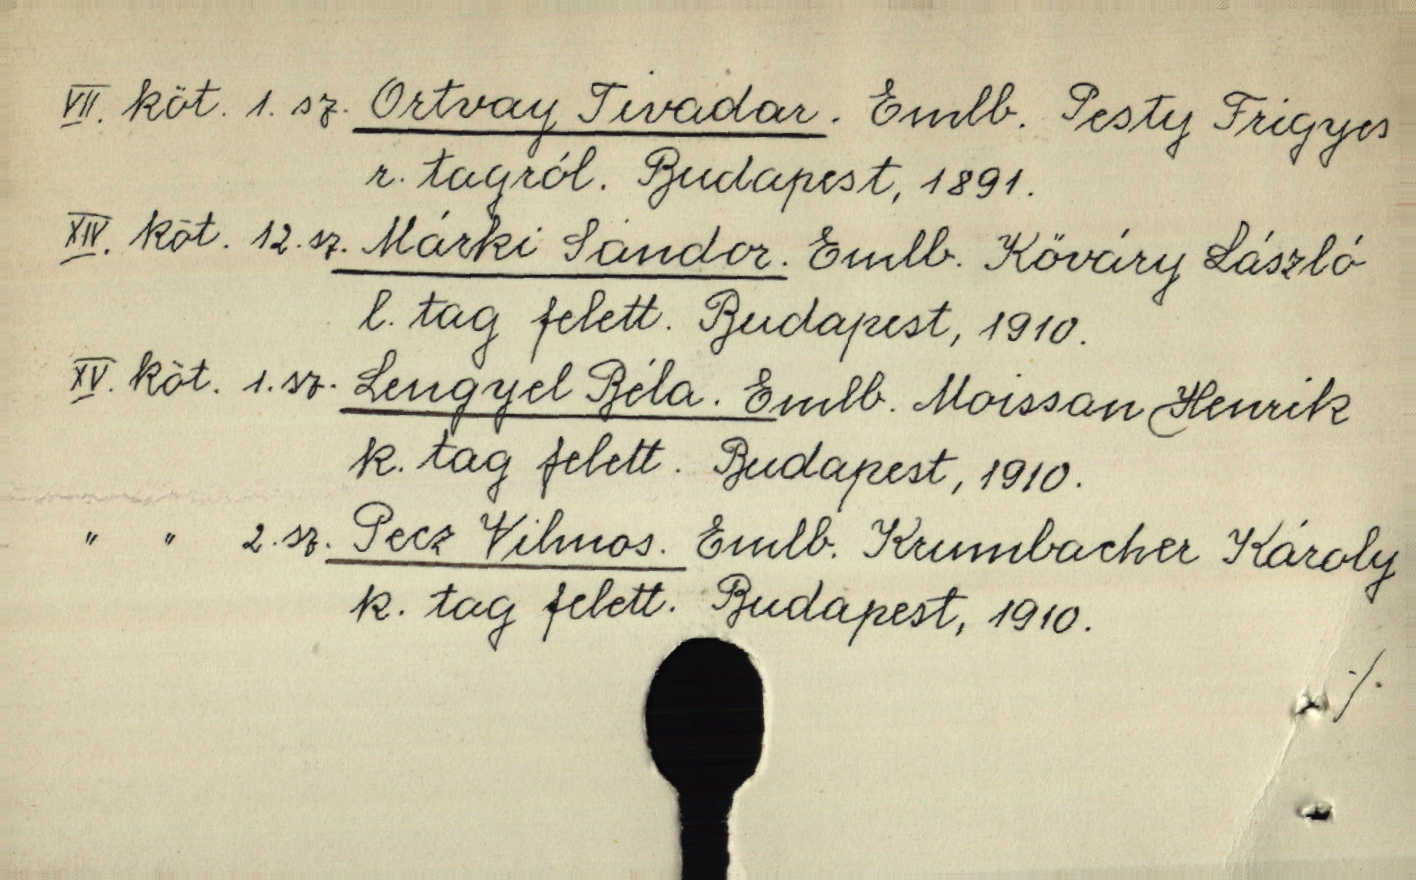 VII. köt. 1. sz. Ortvay Tivadar. Emlb. Pesty Frigyes
r. tagról. Budapest, 1891.
XIV. köt. 12. sz. Márki Sándor. Emlb. Kőváry László
l. tag felett. Budapest, 1910.
XV. köt. 1. sz. Lengyel Béla. Emlb. Moissan Henrik
k. tag felett. Budapest, 1910.
" " 2. sz. Pecz Vilmos. Emlb. Krumbacher Károly
k. tag felett. Budapest, 1910.
./.